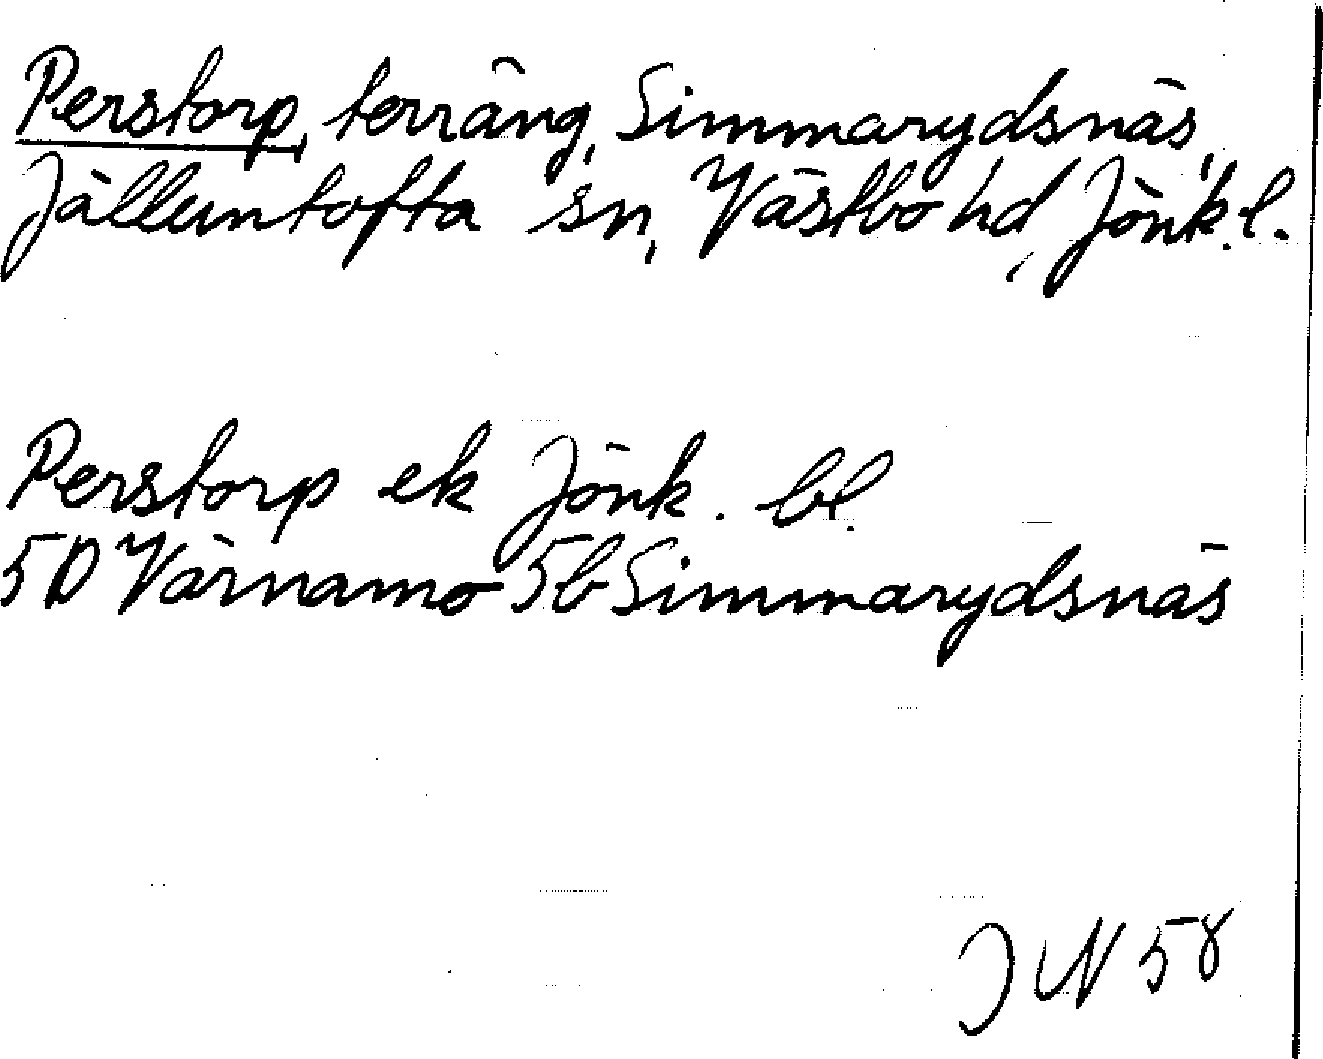 Perstorp, terräng, Simmarydsnäs,
Jälluntofta sn, Västbo hd, Jönk.l.
Perstorp ek Jönk. bl.
5D Värnamo 5b Simmarydsnäs
J W 58